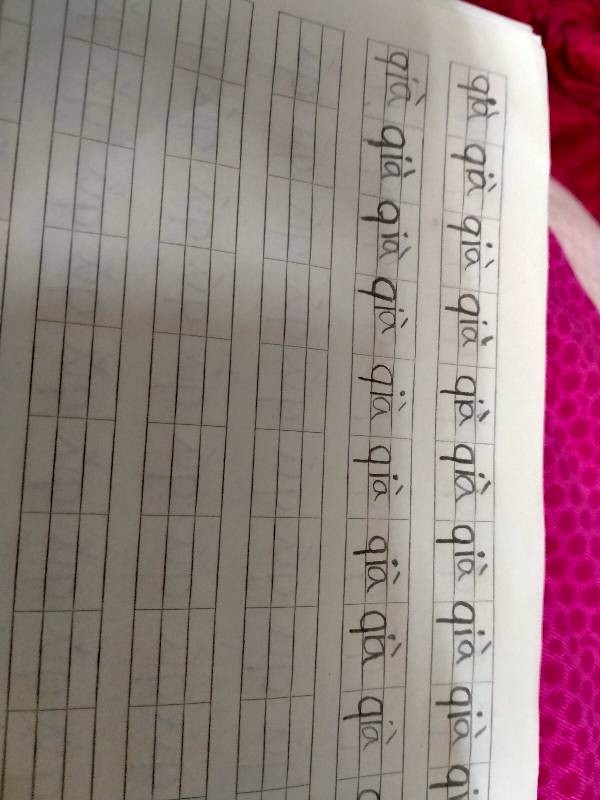 già già già già già già già già già
già già già già già già già già già